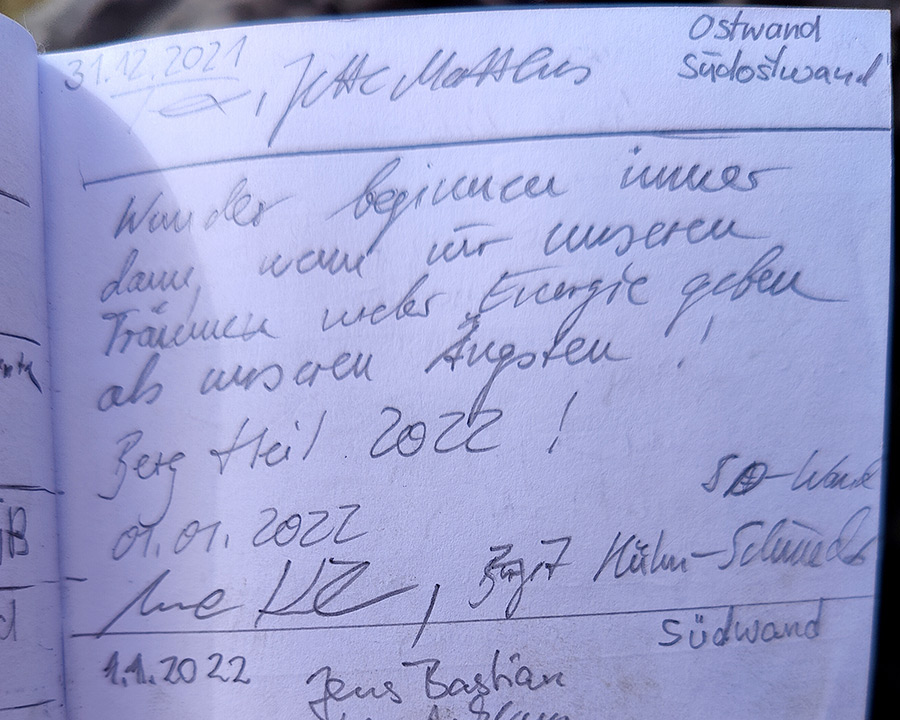 31.12.2021
Ostwand
Südostwand
Jette Matthes
Wunder beginnen immer
dann, wenn wir unseren
Träumen mehr Energie geben
als unseren Ängsten !
Berg Heil 2022 !
SO-Wand
01.01.2022
Südwand
1.1.2022 Jens Bastian